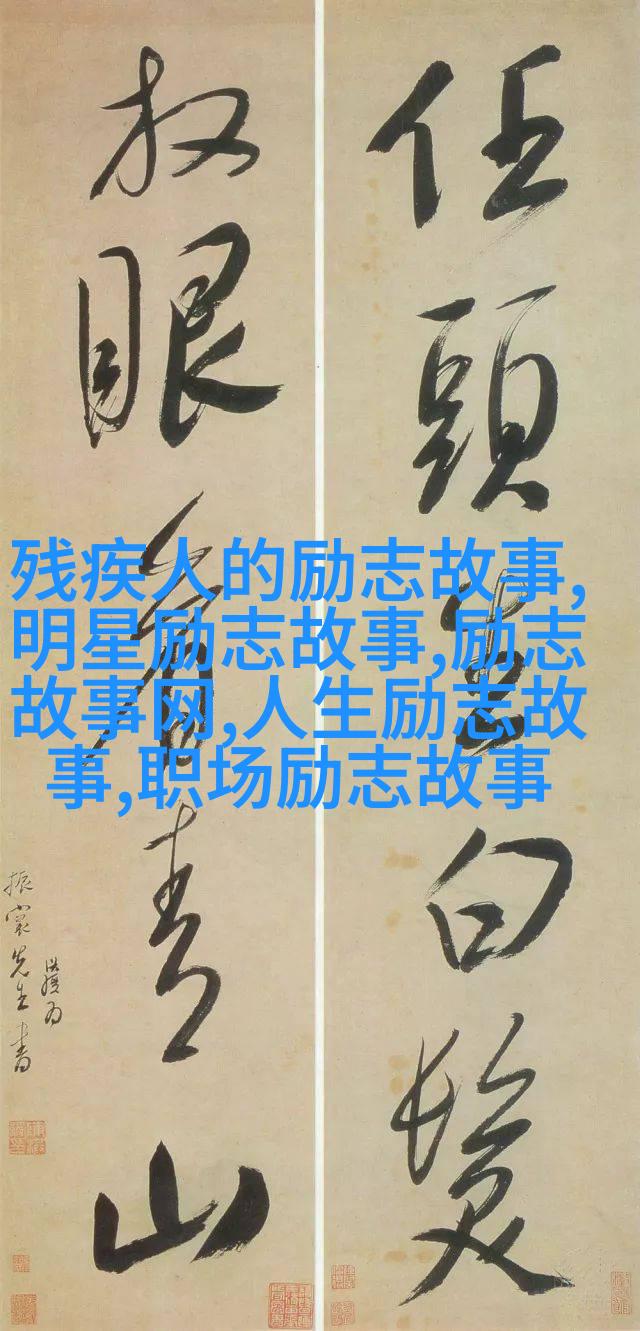 任頭生白髮
放眼看青山
振裳先生書
残疾人的励志故事,
明星励志故事,励志
故事网,人生励志故
事,职场励志故事